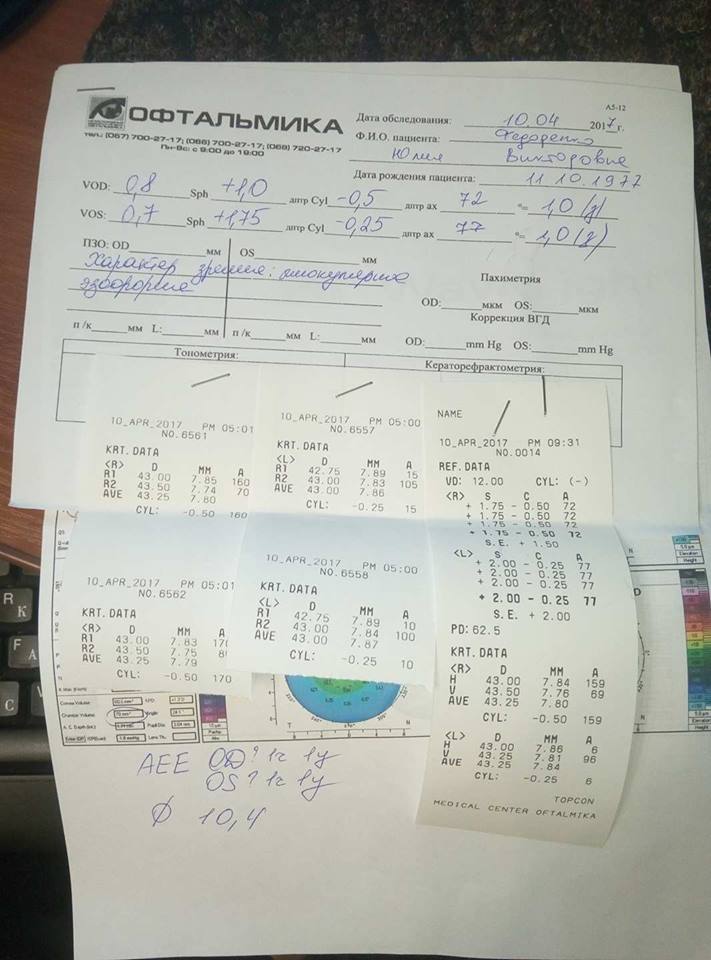 А5-12
ОФТАЛЬМИКА
тел.: (067) 700-27-17; (066) 700-27-17; (068) 720-27-17
Пн-Вс: с 9:00 до 19:00
Дата обследования: 10.04 2017 г.
Ф.И.О. пациента: Федоренко
Юлия Викторовна
Дата рождения пациента: 11.10.1977
VOD: 0,8 Sph +1,0 дптр Cyl -0,5 дптр ax 72 °= 1,0
VOS: 0,7 Sph +1,75 дптр Cyl -0,25 дптр ax 77 °= 1,0
ПЗО: OD мм OS мм
Характер зрения:
Пахиметрия
OD: мкм OS: мкм
Коррекция ВГД
п /к мм L: мм п /к мм L: мм OD: mm Hg OS: mm Hg
Тонометрия: Кераторефрактометрия:
10_APR_2017 PM 05:01
NO.6561
KRT.DATA
<R> D MM A
R1 43.00 7.85 160
R2 43.50 7.74 70
AVE 43.25 7.80
CYL: -0.50 160
10_APR_2017 PM 05:00
NO.6557
KRT.DATA
<L> D MM A
R1 42.75 7.89 15
R2 43.00 7.83 105
AVE 43.00 7.86
CYL: -0.25 15
NAME
10_APR_2017 PM 09:31
NO.0014
REF.DATA
VD: 12.00 CYL: (-)
<R> S C A
+ 1.75 - 0.50 72
+ 1.75 - 0.50 72
+ 1.75 - 0.50 72
+ 1.75 - 0.50 72
S.E. + 1.50
<L> S C A
+ 2.00 - 0.25 77
+ 2.00 - 0.25 77
+ 2.00 - 0.25 77
+ 2.00 - 0.25 77
S.E. + 2.00
PD: 62.5
KRT.DATA
<R> D MM A
H 43.00 7.84 159
V 43.50 7.76 69
AVE 43.25 7.80
CYL: -0.50 159
<L> D MM A
H 43.00 7.86 6
V 43.25 7.81 96
AVE 43.25 7.84
CYL: -0.25 6
TOPCON
MEDICAL CENTER OFTALMIKA
10_APR_2017 PM 05:01
NO.6562
KRT.DATA
<R> D MM
R1 43.00 7.83
R2 43.50 7.75
AVE 43.25 7.79
CYL: -0.50 170
10_APR_2017 PM 05:00
NO.6558
KRT.DATA
<L> D MM A
R1 42.75 7.89 10
R2 43.00 7.84 100
AVE 43.00 7.87
CYL: -0.25 10
Chamber Volume
AEE OD
OS
10,4